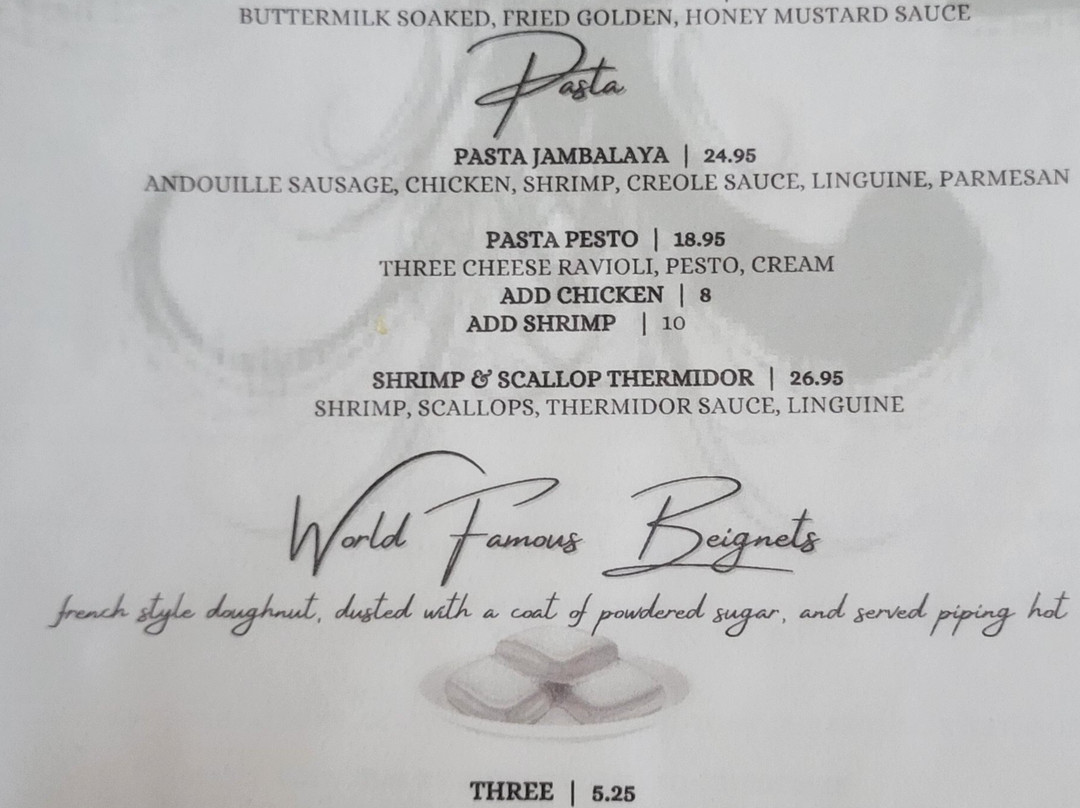 BUTTERMILK SOAKED, FRIED GOLDEN, HONEY MUSTARD SAUCE
Pasta
PASTA JAMBALAYA | 24.95
ANDOUILLE SAUSAGE, CHICKEN, SHRIMP, CREOLE SAUCE, LINGUINE, PARMESAN
PASTA PESTO | 18.95
THREE CHEESE RAVIOLI, PESTO, CREAM
ADD CHICKEN | 8
ADD SHRIMP | 10
SHRIMP & SCALLOP THERMIDOR | 26.95
SHRIMP, SCALLOPS, THERMIDOR SAUCE, LINGUINE
World Famous Beignets
french style doughnut, dusted with a coat of powdered sugar, and served piping hot
THREE | 5.25